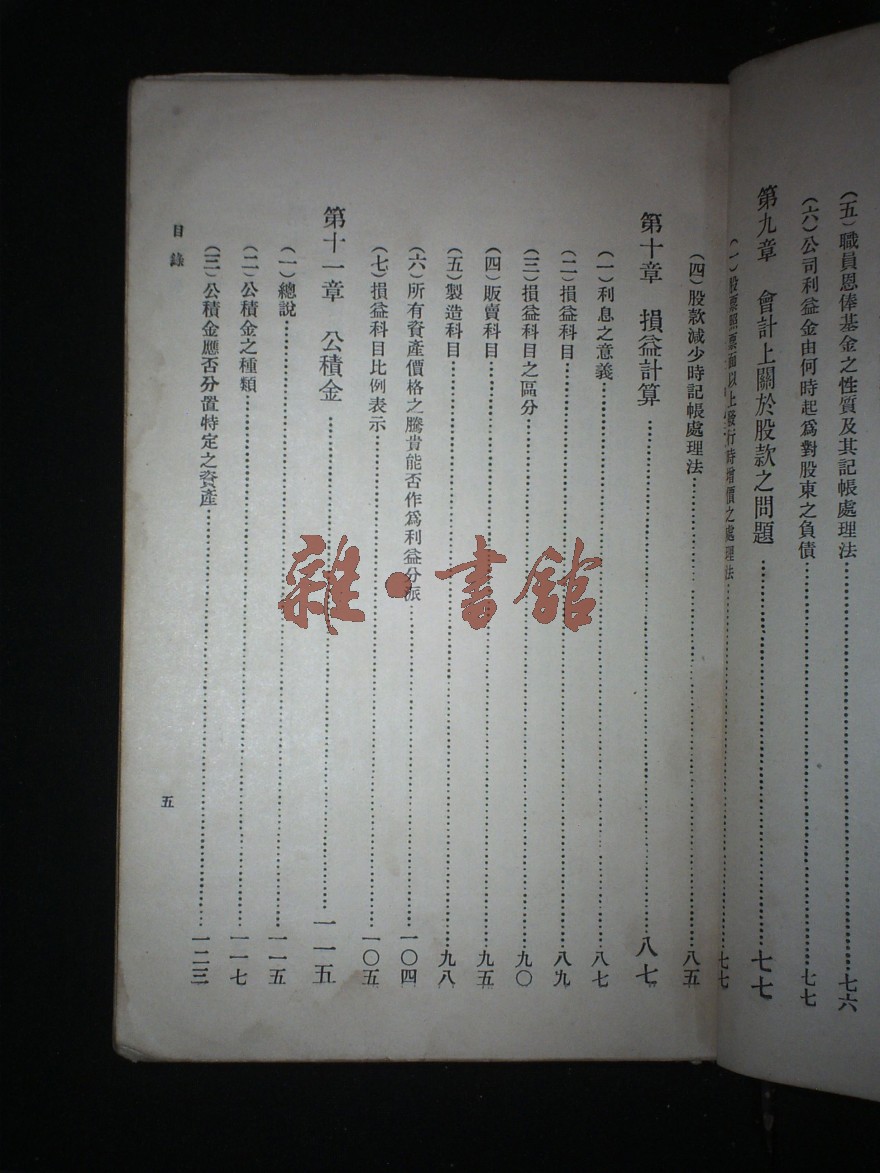 (五)職員恩俸基金之性質及其記帳處理法……七六
(六)公司利益金由何時起爲對股東之負債……七七
第九章 會計上關於股款之問題……七七
(一)股票照票面以上發行時增價之處理法……七七
(四)股款減少時記帳處理法……八五
第十章 損益計算……八七
(一)利息之意義……八七
(二)損益科目……八九
(三)損益科目之區分……九〇
(四)販賣科目……九五
(五)製造科目……九八
(六)所有資產價格之騰貴能否作爲利益分派……一〇四
(七)損益科目比例表示……一〇五
第十一章 公積金……一一五
(一)總說……一一五
(二)公積金之種類……一一七
(三)公積金應否分置特定之資產……一二三
目錄
五
雜·書館